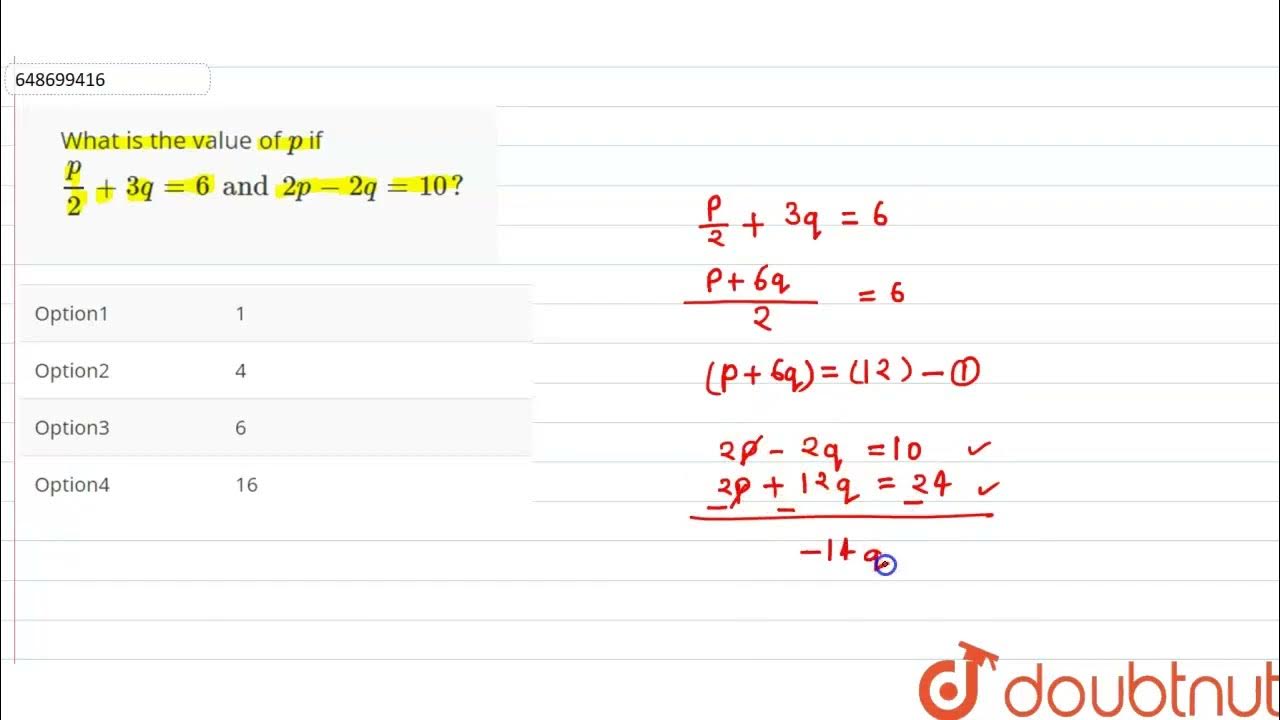 648699416
What is the value of p if
p/2 + 3q = 6 and 2p − 2q = 10?
Option1 1
Option2 4
Option3 6
Option4 16
p/2 + 3q = 6
p + 6q / 2 = 6
(p + 6q) = (12) − ①
2p − 2q = 10 ✓
2p + 12q = 24 ✓
− − −
−14q
doubtnut